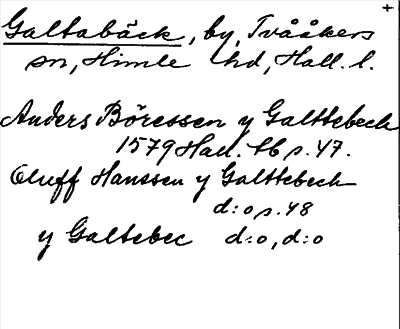 +
Galtabäck, by, Tvååkers
sn, Himle hd, Hall. l.
Anders Böressen y Galttebeck
1579 Hall. Lb p. 47.
Oluff Hanssen y Galttebeck
d:o p. 48
y Galtebec d:o, d:o